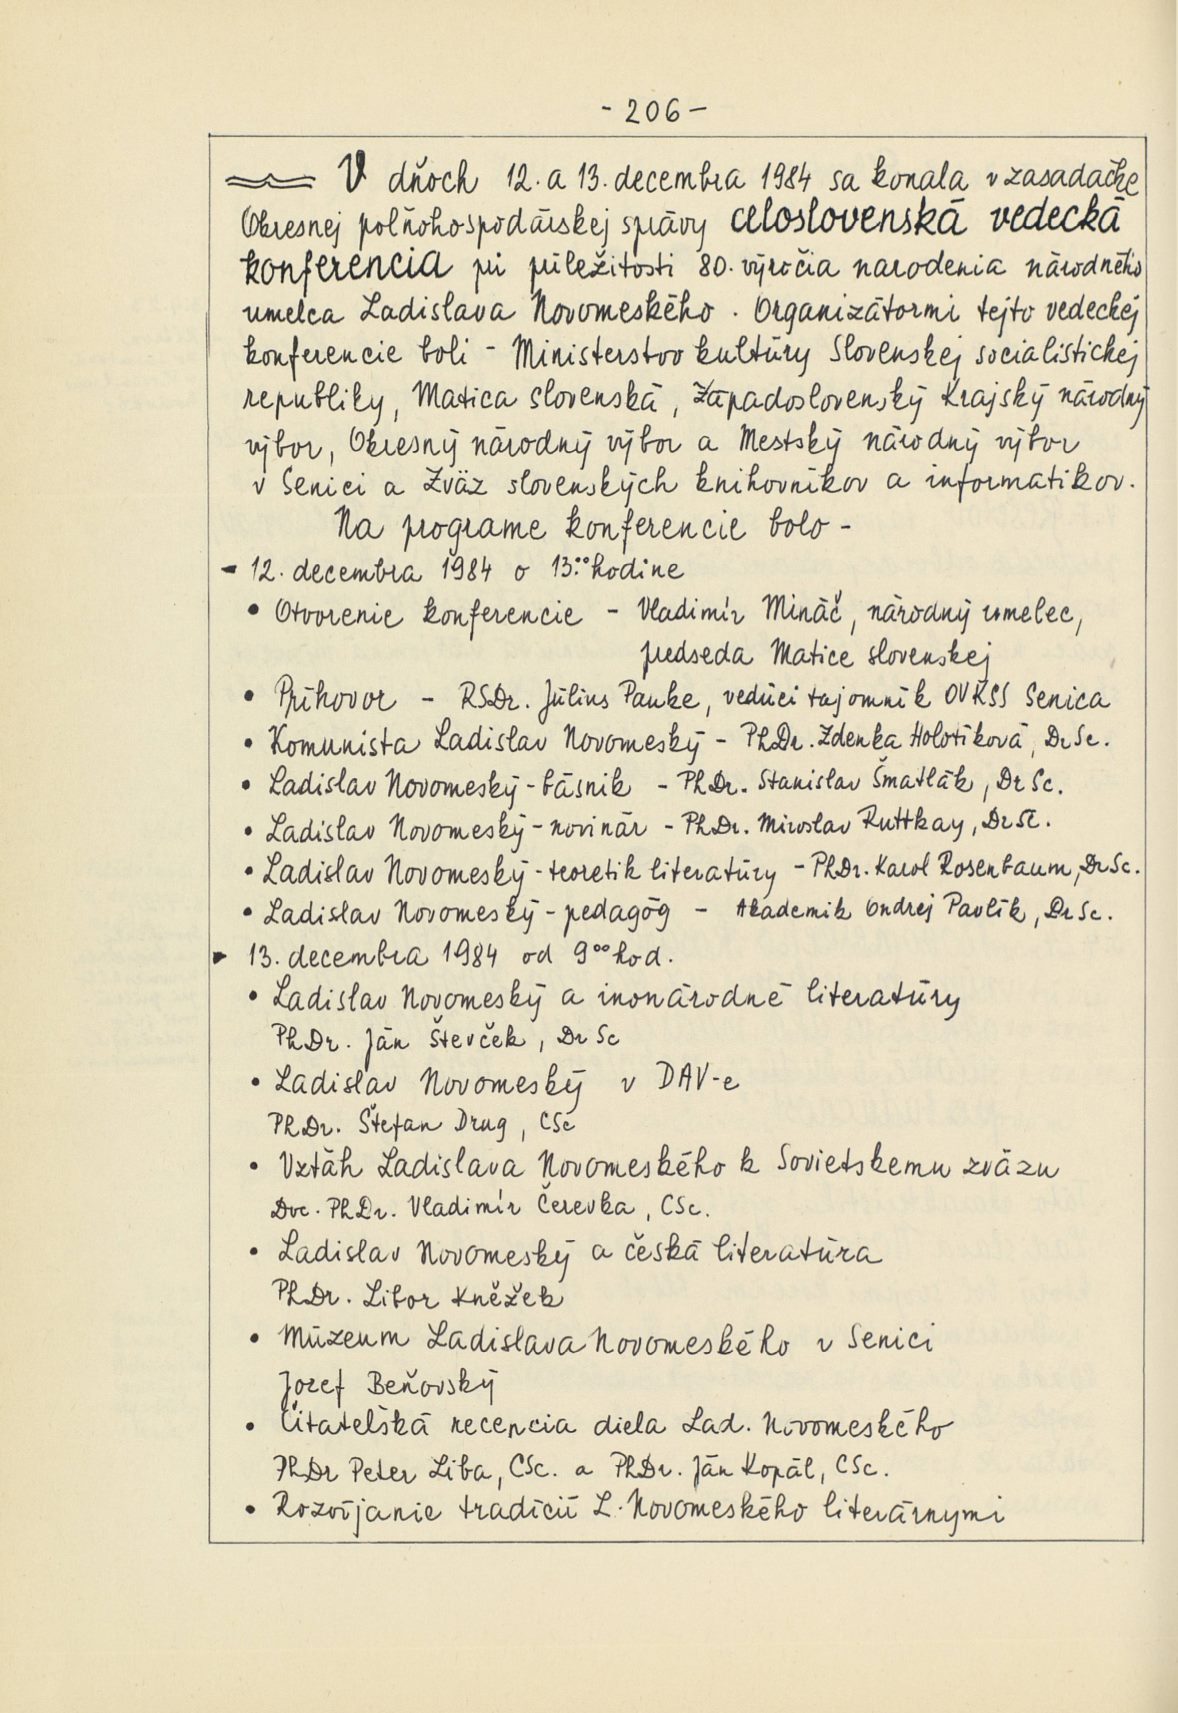 - 206 -
V dňoch 12. a 13. decembra 1984 sa konala v zasadačke
Okresnej poľňohospodárskej správy celoslovenská vedecká
konferencia pri príležitosti 80. výročia narodenia národného
umelca Ladislava Novomeského. Organizátormi tejto vedeckej
konferencie boli - Ministerstvo kultúry Slovenskej socialistickej
republiky, Matica slovenská, Západoslovenský Krajský národný
výbor, Okresný národný výbor a Mestský národný výbor
v Senici a Zväz slovenských knihovníkov a informatikov.
Na programe konferencie bolo -
- 12. decembra 1984 o 13:00 hodine
• Otvorenie konferencie - Vladimír Mináč, národný umelec,
predseda Matice slovenskej
• Príhovor - RSDr. Július Pauke, vedúci tajomník OVKSS Senica
• Komunista Ladislav Novomeský - PhDr. Zdenka Holotíková, DrSc.
• Ladislav Novomeský - básnik - PhDr. Stanislav Šmatlák, DrSc.
• Ladislav Novomeský - novinár - PhDr. Miroslav Ruttkay, DrSc.
• Ladislav Novomeský - teoretik literatúry - PhDr. Karol Rosenbaum, DrSc.
• Ladislav Novomeský - pedagóg - Akademik Ondrej Pavlík, DrSc.
▸ 13. decembra 1984 od 9⁰⁰ hod.
• Ladislav Novomeský a inonárodné literatúry
PhDr. Ján Števček, DrSc
• Ladislav Novomeský v DAV-e
PhDr. Štefan Drug, CSc
• Vzťah Ladislava Novomeského k Sovietskemu zväzu
Doc. PhDr. Vladimír Čerevka, CSc.
• Ladislav Novomeský a česká literatúra
PhDr. Libor Kněžek
• Múzeum Ladislava Novomeského v Senici
Jozef Beňovský
• Čitateľská recepcia diela Lad. Novomeského
PhDr Peter Liba, CSc. a PhDr. Ján Kopál, CSc.
• Rozvíjanie tradícií L. Novomeského literárnymi